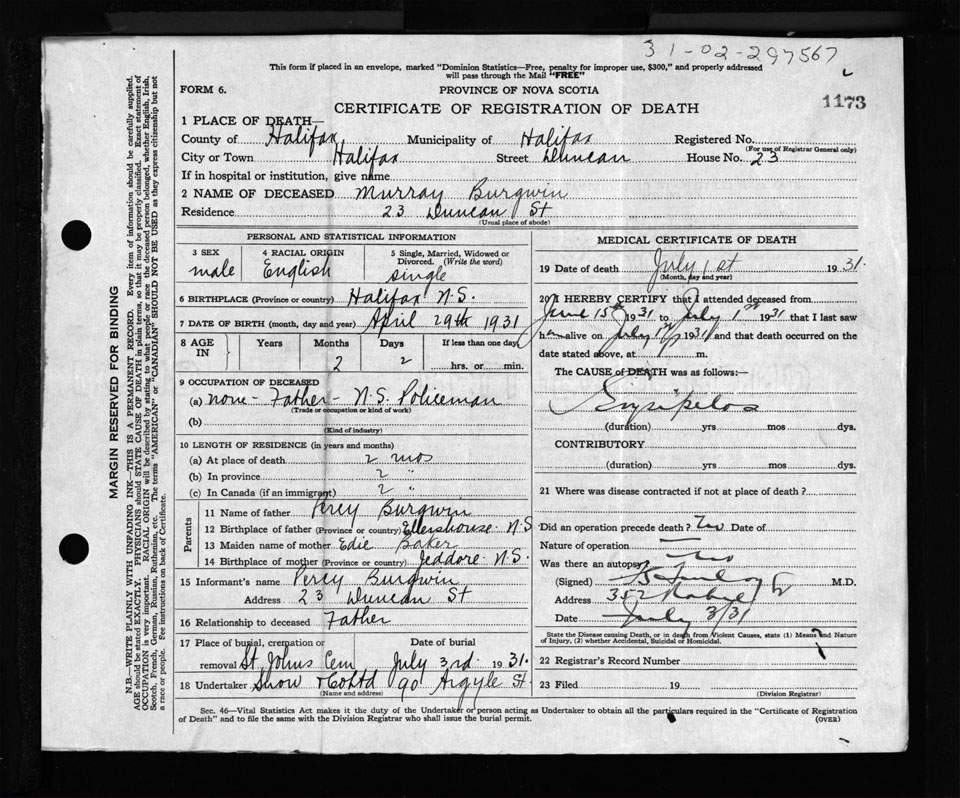 31-02-297567
This form if placed in an envelope, marked "Dominion Statistics—Free, penalty for improper use, $300," and properly addressed
will pass through the Mail "FREE"
FORM 6.
PROVINCE OF NOVA SCOTIA
1173
CERTIFICATE OF REGISTRATION OF DEATH
1 PLACE OF DEATH—
County of Halifax Municipality of Halifax Registered No.
(For use of Registrar General only)
City or Town Halifax Street Duncan House No. 23
If in hospital or institution, give name
2 NAME OF DECEASED Murray Burgwin
Residence 23 Duncan St
(Usual place of abode)
PERSONAL AND STATISTICAL INFORMATION
3 SEX male
4 RACIAL ORIGIN English
5 Single, Married, Widowed or
Divorced. (Write the word)
single
6 BIRTHPLACE (Province or country) Halifax N.S.
7 DATE OF BIRTH (month, day and year) April 29th 1931
8 AGE IN Years Months Days If less than one day
2 2 hrs. or min.
9 OCCUPATION OF DECEASED
(a) none - Father - N.S. Policeman
(Trade or occupation or kind of work)
(b)
(Kind of industry)
10 LENGTH OF RESIDENCE (in years and months)
(a) At place of death 2 mos
(b) In province 2 "
(c) In Canada (if an immigrant) 2 "
Parents
11 Name of father Percy Burgwin
12 Birthplace of father (Province or country) Ellershouse N.S
13 Maiden name of mother Edie Baker
14 Birthplace of mother (Province or country) Jeddore N.S.
15 Informant's name Percy Burgwin
Address 23 Duncan St
16 Relationship to deceased Father
17 Place of burial, cremation or Date of burial
removal St Johns Cem July 3rd 1931.
18 Undertaker Snow & Co Ltd 90 Argyle St.
(Name and address)
MEDICAL CERTIFICATE OF DEATH
19 Date of death July 1st 1931.
(Month, day and year)
20 I HEREBY CERTIFY that I attended deceased from
June 15th 1931 to July 1st 1931 that I last saw
h alive on July 1931 and that death occurred on the
date stated above, at m.
The CAUSE of DEATH was as follows:—
Erysipelas
(duration) yrs mos dys.
CONTRIBUTORY
(duration) yrs mos dys.
21 Where was disease contracted if not at place of death?
Did an operation precede death? No Date of
Nature of operation —
Was there an autopsy No
(Signed) M.D.
Address 352
Date July 3/31
State the Disease causing Death, or in death from Violent Causes, state (1) Means and Nature
of Injury, (2) whether Accidental, Suicidal or Homicidal.
22 Registrar's Record Number
23 Filed 19
(Division Registrar)
Sec. 46—Vital Statistics Act makes it the duty of the Undertaker or person acting as Undertaker to obtain all the particulars required in the "Certificate of Registration
of Death" and to file the same with the Division Registrar who shall issue the burial permit.
(OVER)
MARGIN RESERVED FOR BINDING
N.B.—WRITE PLAINLY WITH UNFADING INK—THIS IS A PERMANENT RECORD. Every item of information should be carefully supplied.
AGE should be stated EXACTLY. PHYSICIANS should STATE CAUSE OF DEATH in plain terms, so that it may be properly classified. Exact statement of
OCCUPATION is very important. RACIAL ORIGIN will be described by stating to what people or race the deceased person belonged, whether English, Irish,
Scotch, French, German, Russian, Ruthenian, etc. The terms "AMERICAN" or "CANADIAN" SHOULD NOT BE USED as they express citizenship but not
a race or people. See instructions on back of Certificate.